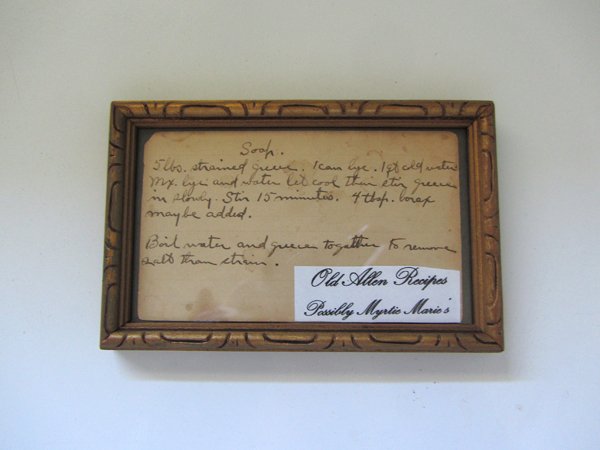 Soap.
5 lbs. strained grease. 1 can lye. 1 qt cold water
Mx. lye and water let cool then stir grease
in slowly. Stir 15 minutes. 4 tbsp. borax
maybe added.
Boil water and grease together to remove
salt then strain.
Old Allen Recipes
Possibly Myrtie Marie's